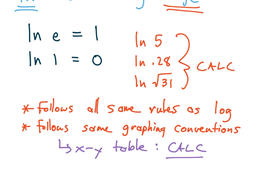 ln e = 1
ln 1 = 0
ln 5
ln .28
ln √31
CALC
* follows all same rules as log
* follows same graphing conventions
↳ x-y table : CALC